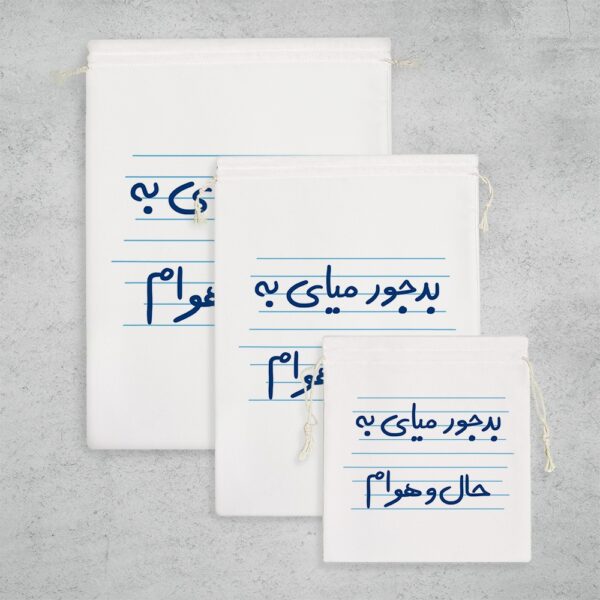 ی به
هوام
بدجور میای به
وام
بدجور میای به
حال و هوام